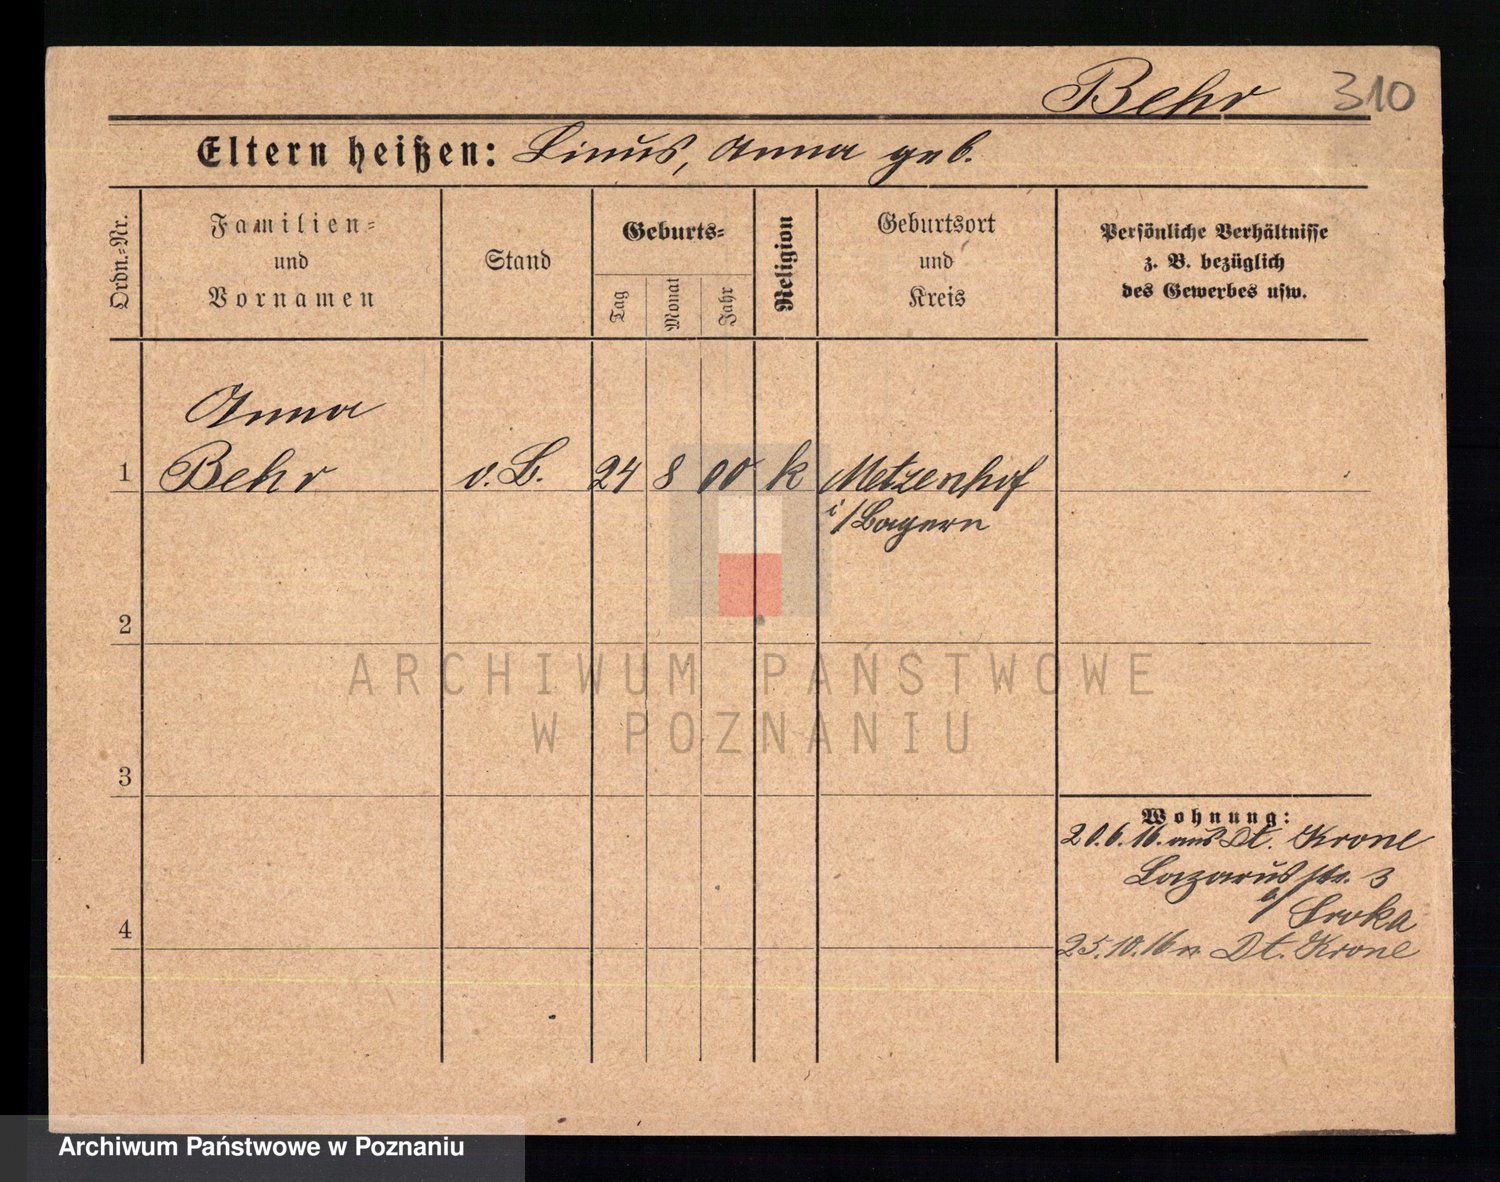 Behr 310
Eltern heißen: Linus, Anna geb.
Ordn.=Nr.
Familien=
und
Vornamen
Stand
Geburts=
Tag
Monat
Jahr
Religion
Geburtsort
und
Kreis
Persönliche Verhältnisse
z. B. bezüglich
des Gewerbes usw.
Anna
1 Behr o. B. 24 8 00 k Metzenhof
i/Bayern
2
ARCHIWUM PAŃSTWOWE
W POZNANIU
3
Wohnung:
20.6.16. aus Dt. Krone
Lazarusstr. 3
b/ Sroka
4
25.10.16 n Dt. Krone
Archiwum Państwowe w Poznaniu